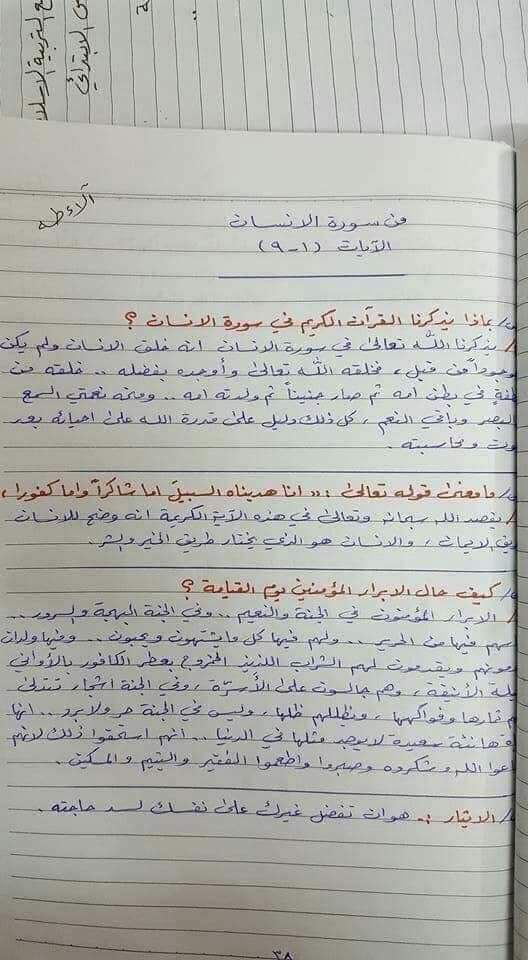 ع التربية الاسلا
س الابتدائي
ة
آلاء طه
من سورة الانسان
الآيات (١-٩)
س/ بماذا يذكرنا القرآن الكريم في سورة الانسان ؟
/ يذكرنا الله تعالى في سورة الانسان انه خلق الانسان ولم يكن
وجوداً من قبل، فخلقه الله تعالى وأوجده بفضله .. خلقه من
طفةٍ في بطن امه ثم صار جنيناً ثم ولدته امه .. ومنحه نعمتي السمع
البصر وباقي النعم، كل ذلك دليل على قدرة الله على احيائه بعد
وت ومحاسبته.
/ ما معنى قوله تعالى : « انا هديناه السبيل اما شاكراً واما كفورا»
/ يقصد الله سبحانه وتعالى في هذه الآية الكريمة انه وضح للانسان
يق الايمان، والانسان هو الذي يختار طريق الخير والشر.
/ كيف حال الابرار المؤمنين يوم القيامة ؟
/ الابرار المؤمنون في الجنة والنعيم .. وفي الجنة البهجة والسرور ..
سهم فيها من الحرير .. ولهم فيها كل ما يشتهون ويحبون .. وفيها ولدان
مونهم ويقدمون لهم الشراب اللذيذ الممزوج بعطر الكافور بالأواني
يلة الأنيقة، وهم جالسون على الأسرّة، وفي الجنة اشجار تتدلى
م ثمارها وفواكهها، وتظللهم ظلها، وليس في الجنة حر ولا برد .. انها
ة هانئة سعيدة لا يوجد مثلها في الدنيا .. انهم استحقوا ذلك لانهم
اعوا الله وشكروه وصبروا واطعموا الفقير واليتيم والمسكين.
/ الايثار :. هو ان تفضل غيرك على نفسك لسد حاجته.
٣٨